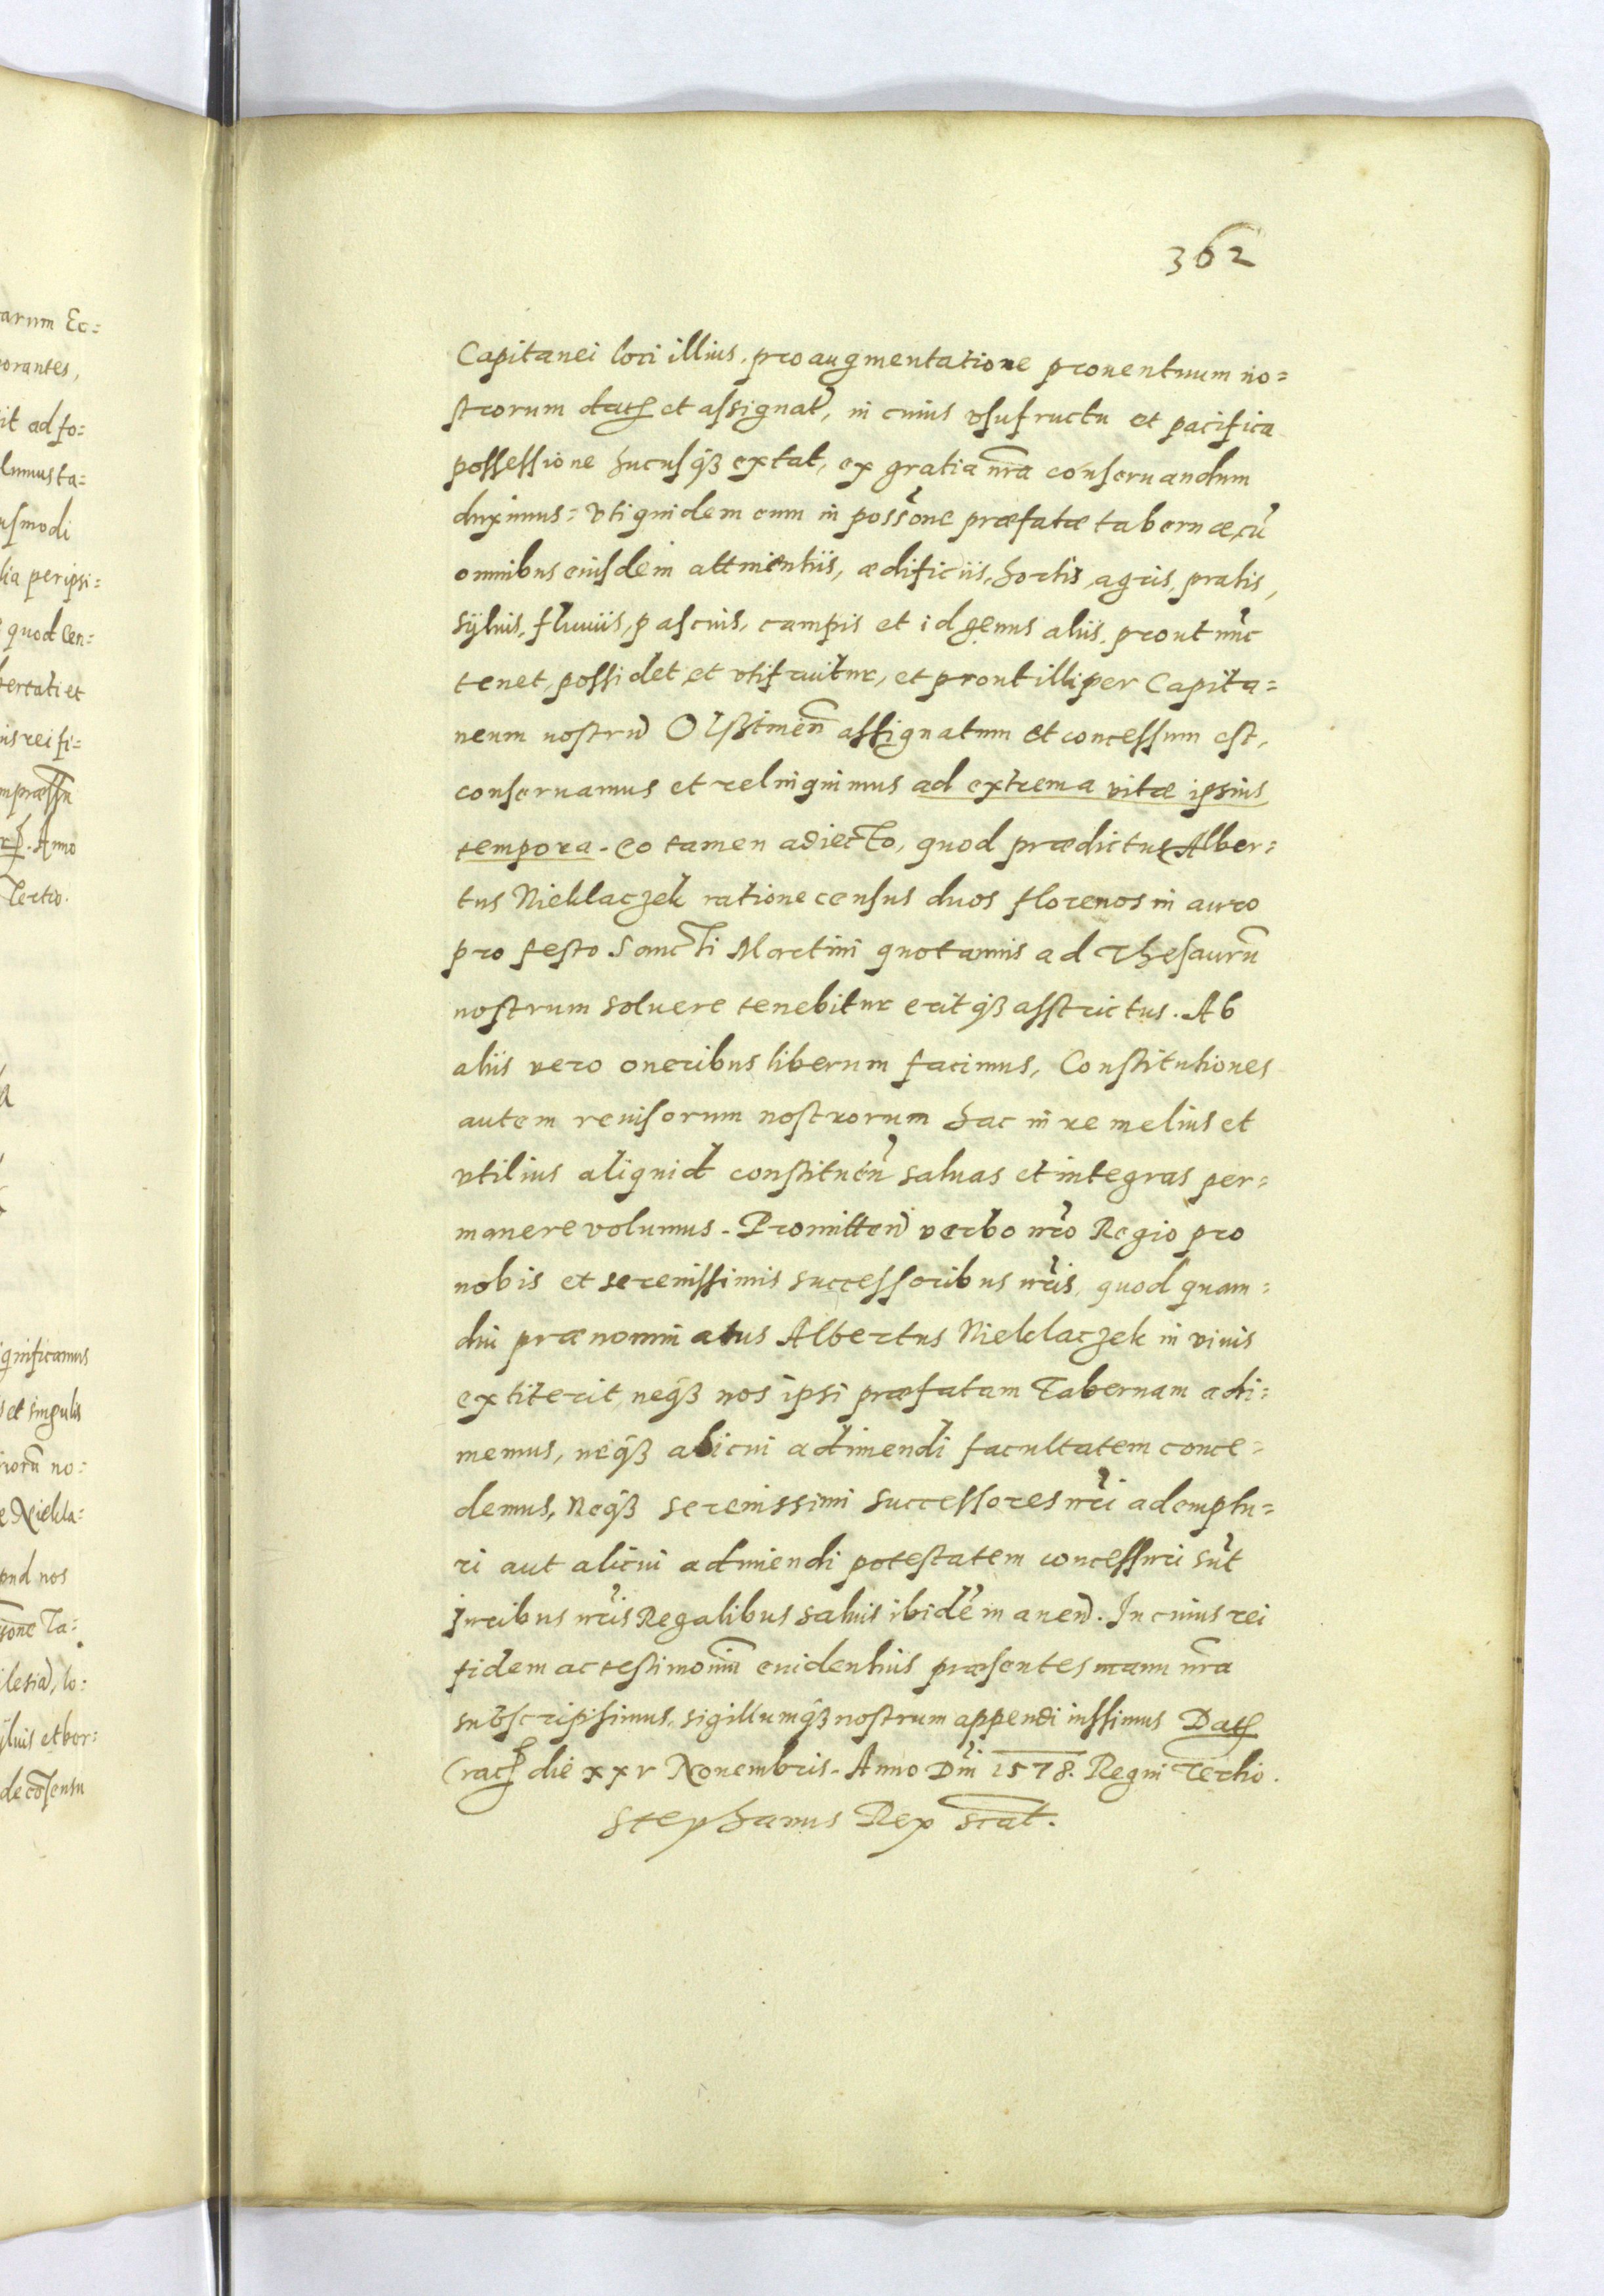 362
Capitanei loci illius, pro augmentatione prouentuum no=
strorum dat et assignat, in cuius vsufructu et pacifica
possessione hucusq3 extat, ex gratia nra conseruandum
duximus= vti quidem eum in possone præfatæ tabernæ, cu
omnibus eiusdem attinentiis, ædificiis, hortis, agris, pratis,
syluis, fluuiis, pascuis, campis et id genus aliis, prout nuc
tenet, possidet, et vtifruitur, et prout illi per Capita=
neum nostru Olstinen assignatum et concessum est,
conseruamus et relinquimus ad extrema vitæ ipsius
tempora. eo tamen adiecto, quod prædictus Alber=
tus Nieklaczek ratione census duos florenos in auro
pro festo Sancti Martini quotannis ad Thesauru
nostrum soluere tenebitur eritq3 asstrictus. Ab
aliis vero oneribus liberum facimus, Constitutiones
autem reuisorum nostrorum hac in re melius et
vtilius aliquid constituen saluas et integras per=
manere volumus. Promitten verbo nro Regio pro
nobis et serenissimis successoribus nris, quod quam=
diu prænominatus Albertus Nieklaczek in viuis
extiterit, neq3 nos ipsi præfatam Tabernam adi=
memus, neq3 alicui adimendi facultatem conce=
demus, Neq3 serenissimi successores nri ademptu=
ri aut alicui adimendi potestatem concessuri sut
Iuribus nris Regalibus saluis ibidem manen. In cuius rei
fidem ac testimoniu euidentius præsentes manu nra
subscripsimus, sigillumq3 nostrum appendi iussimus Dat
Crac die xxv Nouembris. Anno Dni 1578. Regni Tertio.
Stephanus Rex scat.
arum Ec=
orantes,
it ad fo=
lumus ta=
usmodi
lia per ipsi=
quod Cen=
bertati et
ius rei fi=
Anno
Tertio.
ignificamus
et singulis
rioru no=
e Niekla=
pud nos
sone Ta=
lesia, lo=
yluis et bor=
de cosensu